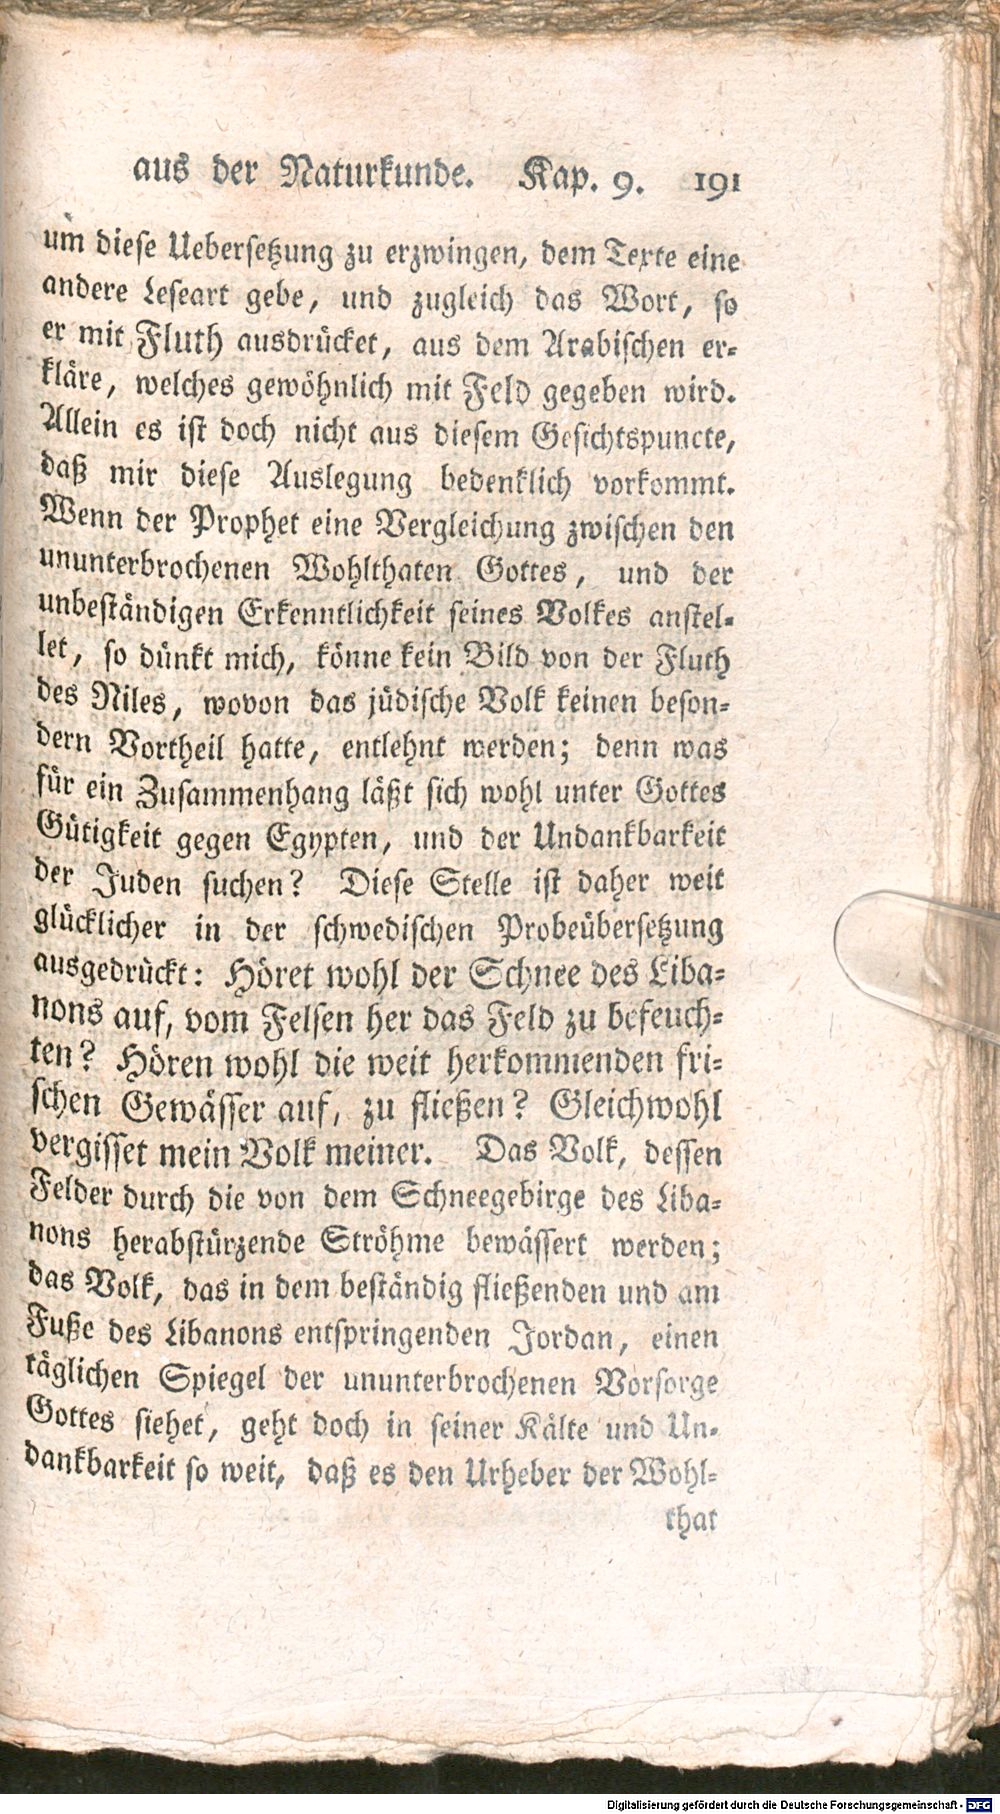 aus der Naturkunde. Kap. 9. 191
um diese Uebersetzung zu erzwingen, dem Texte eine
andere Leseart gebe, und zugleich das Wort, so
er mit Fluth ausdrücket, aus dem Arabischen er-
kläre, welches gewöhnlich mit Feld gegeben wird.
Allein es ist doch nicht aus diesem Gesichtspuncte,
daß mir diese Auslegung bedenklich vorkommt.
Wenn der Prophet eine Vergleichung zwischen den
ununterbrochenen Wohlthaten Gottes, und der
unbeständigen Erkenntlichkeit seines Volkes anstel-
let, so dünkt mich, könne kein Bild von der Fluth
des Niles, wovon das jüdische Volk keinen beson-
dern Vortheil hatte, entlehnt werden; denn was
für ein Zusammenhang läßt sich wohl unter Gottes
Gütigkeit gegen Egypten, und der Undankbarkeit
der Juden suchen? Diese Stelle ist daher weit
glücklicher in der schwedischen Probeübersetzung
ausgedrückt: Höret wohl der Schnee des Liba-
nons auf, vom Felsen her das Feld zu befeuch-
ten? Hören wohl die weit herkommenden fri-
schen Gewässer auf, zu fließen? Gleichwohl
vergisset mein Volk meiner. Das Volk, dessen
Felder durch die von dem Schneegebirge des Liba-
nons herabstürzende Ströhme bewässert werden;
das Volk, das in dem beständig fließenden und am
Fuße des Libanons entspringenden Jordan, einen
täglichen Spiegel der ununterbrochenen Vorsorge
Gottes siehet, geht doch in seiner Kälte und Un-
dankbarkeit so weit, daß es den Urheber der Wohl-
that
Digitalisierung gefördert durch die Deutsche Forschungsgemeinschaft - DFG